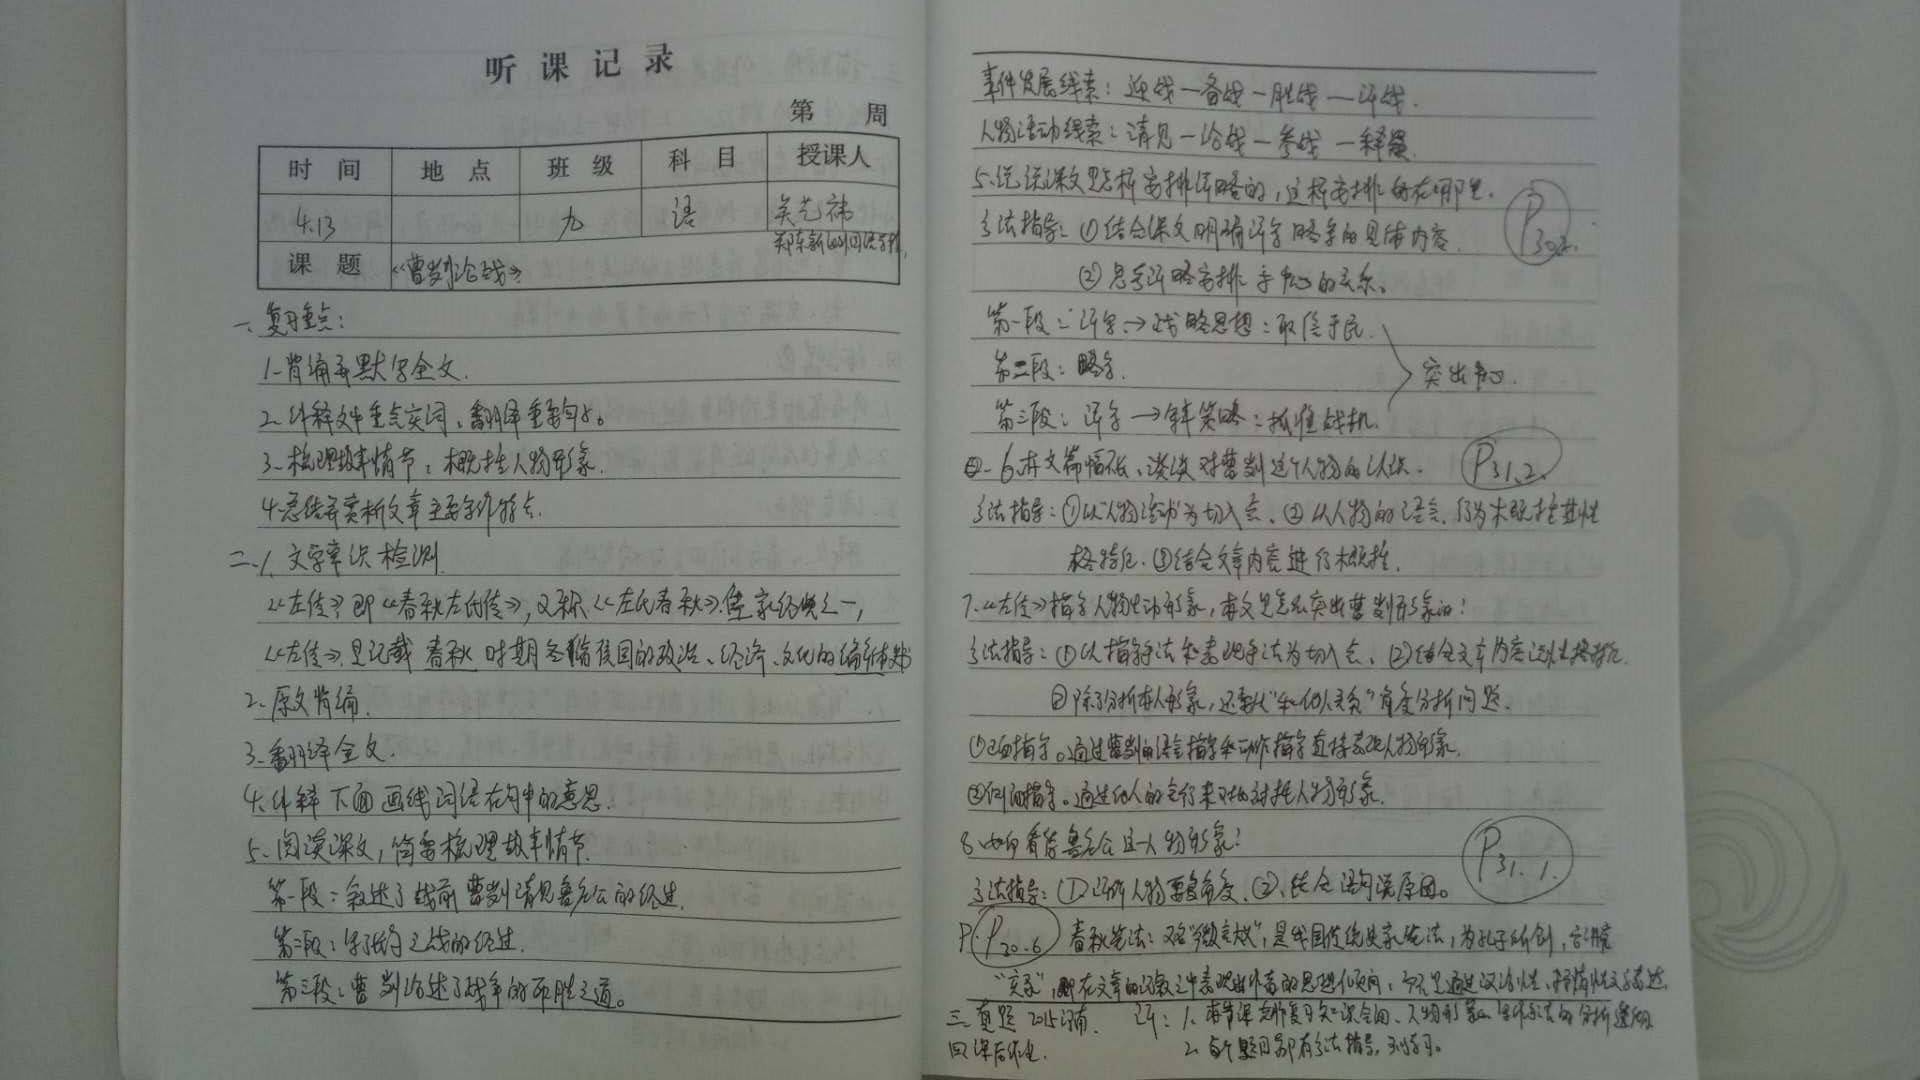 听课记录
第 周
时间 地点 班级 科目 授课人
4.13 九 语 吴艺祎
郑东新区外国语学校
课题 《曹刿论战》
一、复习重点:
1.背诵再默写全文.
2.解释文中重点实词,翻译重要句子。
3.梳理故事情节,概括人物形象.
4.总结并赏析文章主要写作特点.
二、1.文学常识检测
《左传》即《春秋左氏传》,又称《左氏春秋》.儒家经典之一,
《左传》是记载 春秋 时期各诸侯国的政治、经济、文化的编年体史书
2.原文背诵.
3.翻译全文.
4.解释下面画线词语在句中的意思.
5.阅读课文,简要梳理故事情节.
第一段:叙述了战前曹刿请见鲁庄公的经过.
第二段:写长勺之战的经过.
第三段:曹刿论述了战争的取胜之道。
事件发展线索:迎战—备战—胜战—评战.
人物活动线索:请见—论战—参战—释疑.
5.说说课文是怎样安排详略的,这样安排好在哪里.
P30.2.
方法指导:①结合课文明确详写略写的具体内容.
②思考详略安排与中心的关系。
第一段:详写→战略思想:取信于民.
第二段:略写. 突出中心.
第三段:详写→策略:抓准战机.
6.本文篇幅不长,谈谈对曹刿这个人物的认识. P31.2.
方法指导:①以"人物活动"为切入点.②从人物的语言、行为概括其性
格特征.③结合文章内容进行概括.
7.《左传》描写人物生动形象,本文是怎么突出曹刿形象的?
方法指导:①以描写手法和表现手法为切入点.②结合文章内容谈性格特征.
③除了分析本人形象,还要从"和他人关系"角度分析问题.
①正面描写。通过曹刿的语言描写和动作描写直接表现人物形象.
②侧面描写。通过他人的言行来对比衬托人物形象.
8.如何看待鲁庄公这一人物形象?
P31.1.
方法指导:①评价人物要多角度.②结合语句说原因。
P20.6 春秋笔法:又名"微言大义",是我国传统史家笔法,为孔子所创,
三.真题 2015河南. 评:1.
四.课后作业. 2.每个题目都有方法指导,